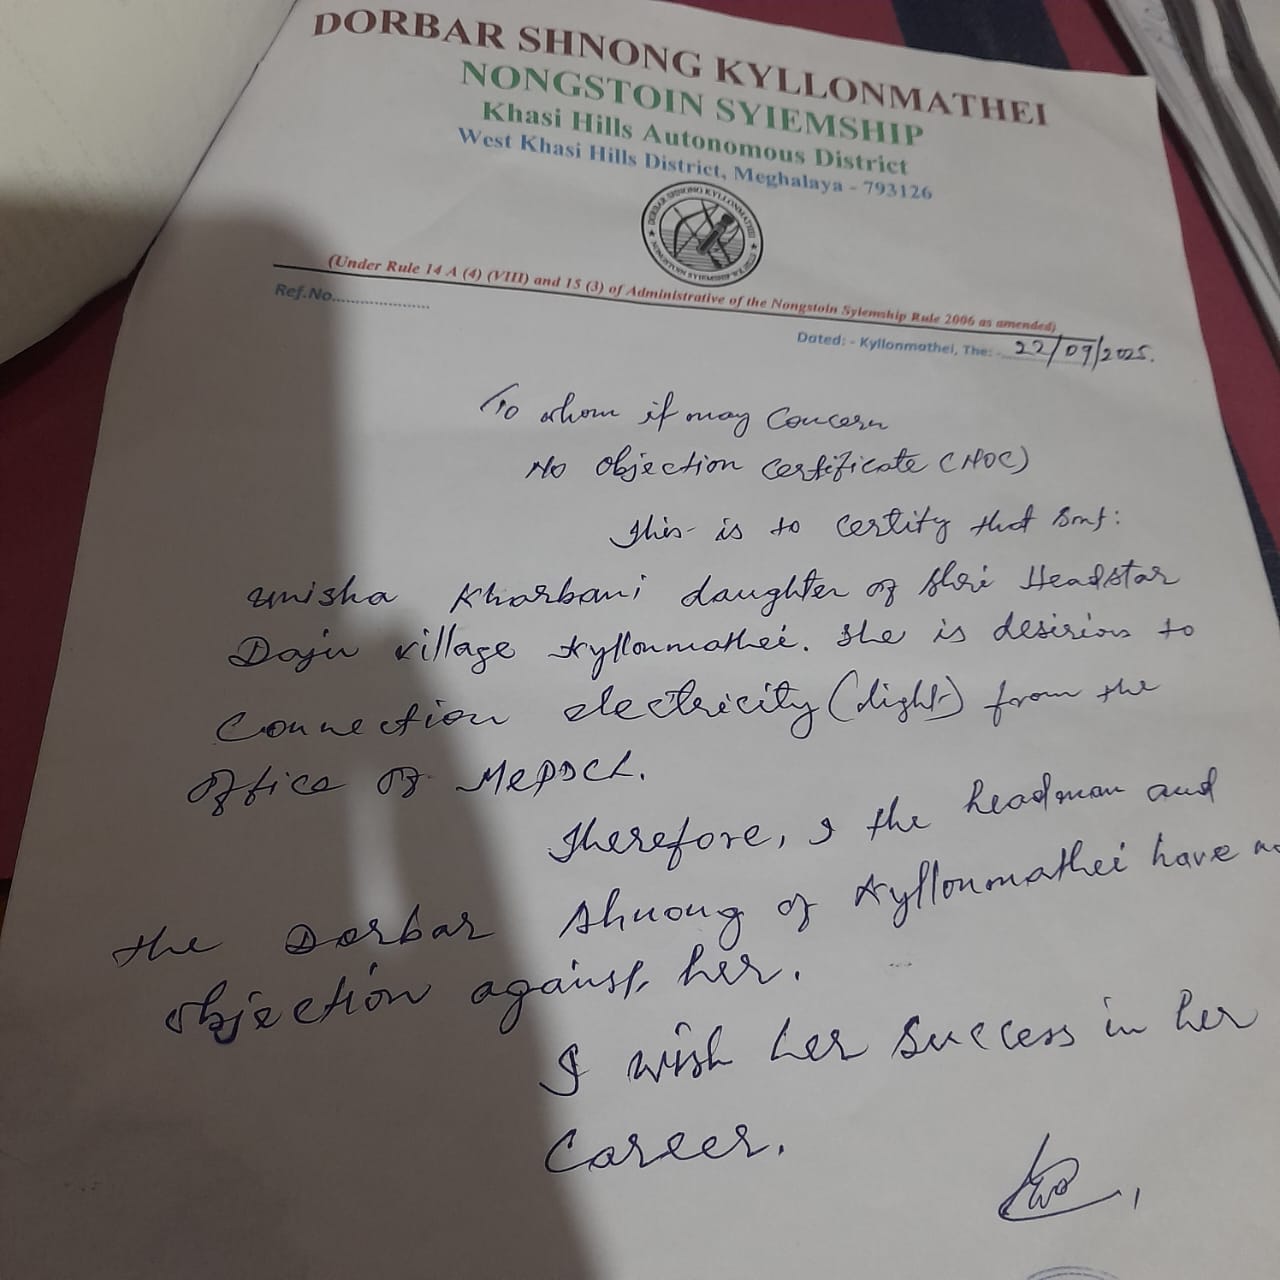 DORBAR SHNONG KYLLONMATHEI
NONGSTOIN SYIEMSHIP
Khasi Hills Autonomous District
West Khasi Hills District, Meghalaya - 793126
DORBAR SHNONG KYLLONMATHEI
NONGSTOIN SYIEMSHIP
(Under Rule 14 A (4) (VIII) and 15 (3) of Administrative of the Nongstoin Syiemship Rule 2006 as amended)
Ref.No.....................
Dated: - Kyllonmathei, The: - 22/09/2025.
To whom if may Concern
No objection certificate (NOC)
This is to certity that Smt:
unisha Kharbani daughter of Shri Headstar
Doju village Kyllonmathei. She is desirious to
Connection electricity (light) from the
office of MePDCL.
Therefore, I the headman and
the Dorbar Shnong of Kyllonmathei have no
objection against her.
I wish her success in her
Career.